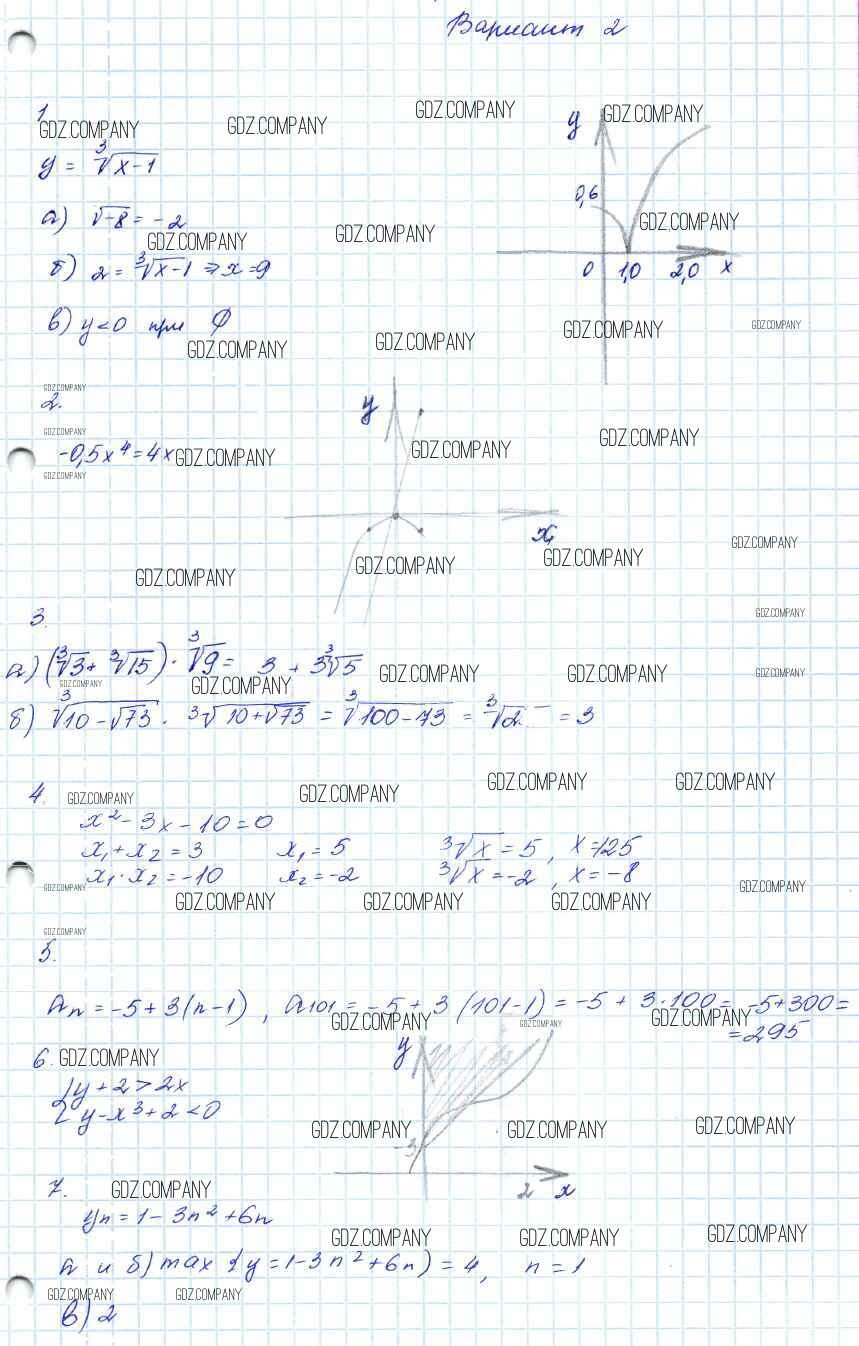 Вариант 2
1
GDZ.COMPANY GDZ.COMPANY GDZ.COMPANY GDZ.COMPANY
y = ∛(x-1)
y
0,6
0 1,0 2,0 x
а) √-8 = -2
GDZ.COMPANY GDZ.COMPANY GDZ.COMPANY
б) 2 = ∛x-1 ⇒ x=9
в) y<0 при ∅
GDZ.COMPANY GDZ.COMPANY GDZ.COMPANY GDZ.COMPANY
GDZ.COMPANY
2.
y
x
GDZ.COMPANY
-0,5x⁴=4x GDZ.COMPANY GDZ.COMPANY GDZ.COMPANY
GDZ.COMPANY
GDZ.COMPANY GDZ.COMPANY GDZ.COMPANY GDZ.COMPANY
3. GDZ.COMPANY
а) (∛3 + ∛15) · ∛9 = 3 + 3∛5
GDZ.COMPANY GDZ.COMPANY GDZ.COMPANY GDZ.COMPANY GDZ.COMPANY
б) ∛(10-√73) · ∛(10+√73) = ∛(100-73) = ∛2 = 3
4. GDZ.COMPANY GDZ.COMPANY GDZ.COMPANY GDZ.COMPANY
x²-3x-10=0
x₁+x₂=3 x₁=5 ∛x=5, x=125
x₁·x₂=-10 x₂=-2 ∛x=-2, x=-8
GDZ.COMPANY GDZ.COMPANY GDZ.COMPANY GDZ.COMPANY GDZ.COMPANY
GDZ.COMPANY
5.
an=-5+3(n-1), a101=-5+3(101-1)=-5+3·100=-5+300=
=295
GDZ.COMPANY GDZ.COMPANY GDZ.COMPANY
6. GDZ.COMPANY
{y+2>2x
{y-x³+2<0
y
-3
2 x
GDZ.COMPANY GDZ.COMPANY GDZ.COMPANY
7. GDZ.COMPANY
yn=1-3n²+6n
GDZ.COMPANY GDZ.COMPANY GDZ.COMPANY
а и б) max {y=1-3n²+6n)=4, n=1
GDZ.COMPANY GDZ.COMPANY
в) 2